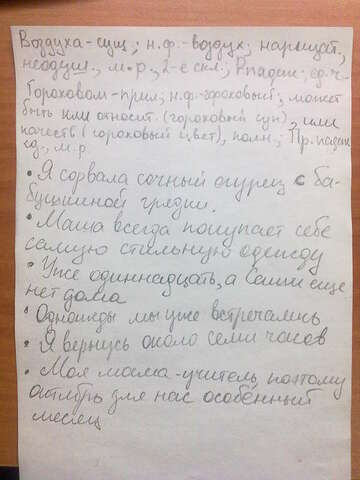 Воздуха-сущ.; н.ф.-воздух; нарицат.,
неодуш., м.р., 2-е скл.; Р.падеж; ед.ч.
Гороховом-прил; н.ф.-гороховый; может
быть или относит. (гороховый суп), или
качеств (гороховый цвет), полн.; Пр. падеж
ед., м.р
• Я сорвала сочный огурец с ба-
бушкиной грядки.
• Маша всегда покупает себе
самую стильную одежду
• Уже одиннадцать, а Саши еще
нет дома
• Однажды мы уже встречались
• Я вернусь около семи часов
• Моя мама-учитель, поэтому
октябрь для нас особенный
месяц